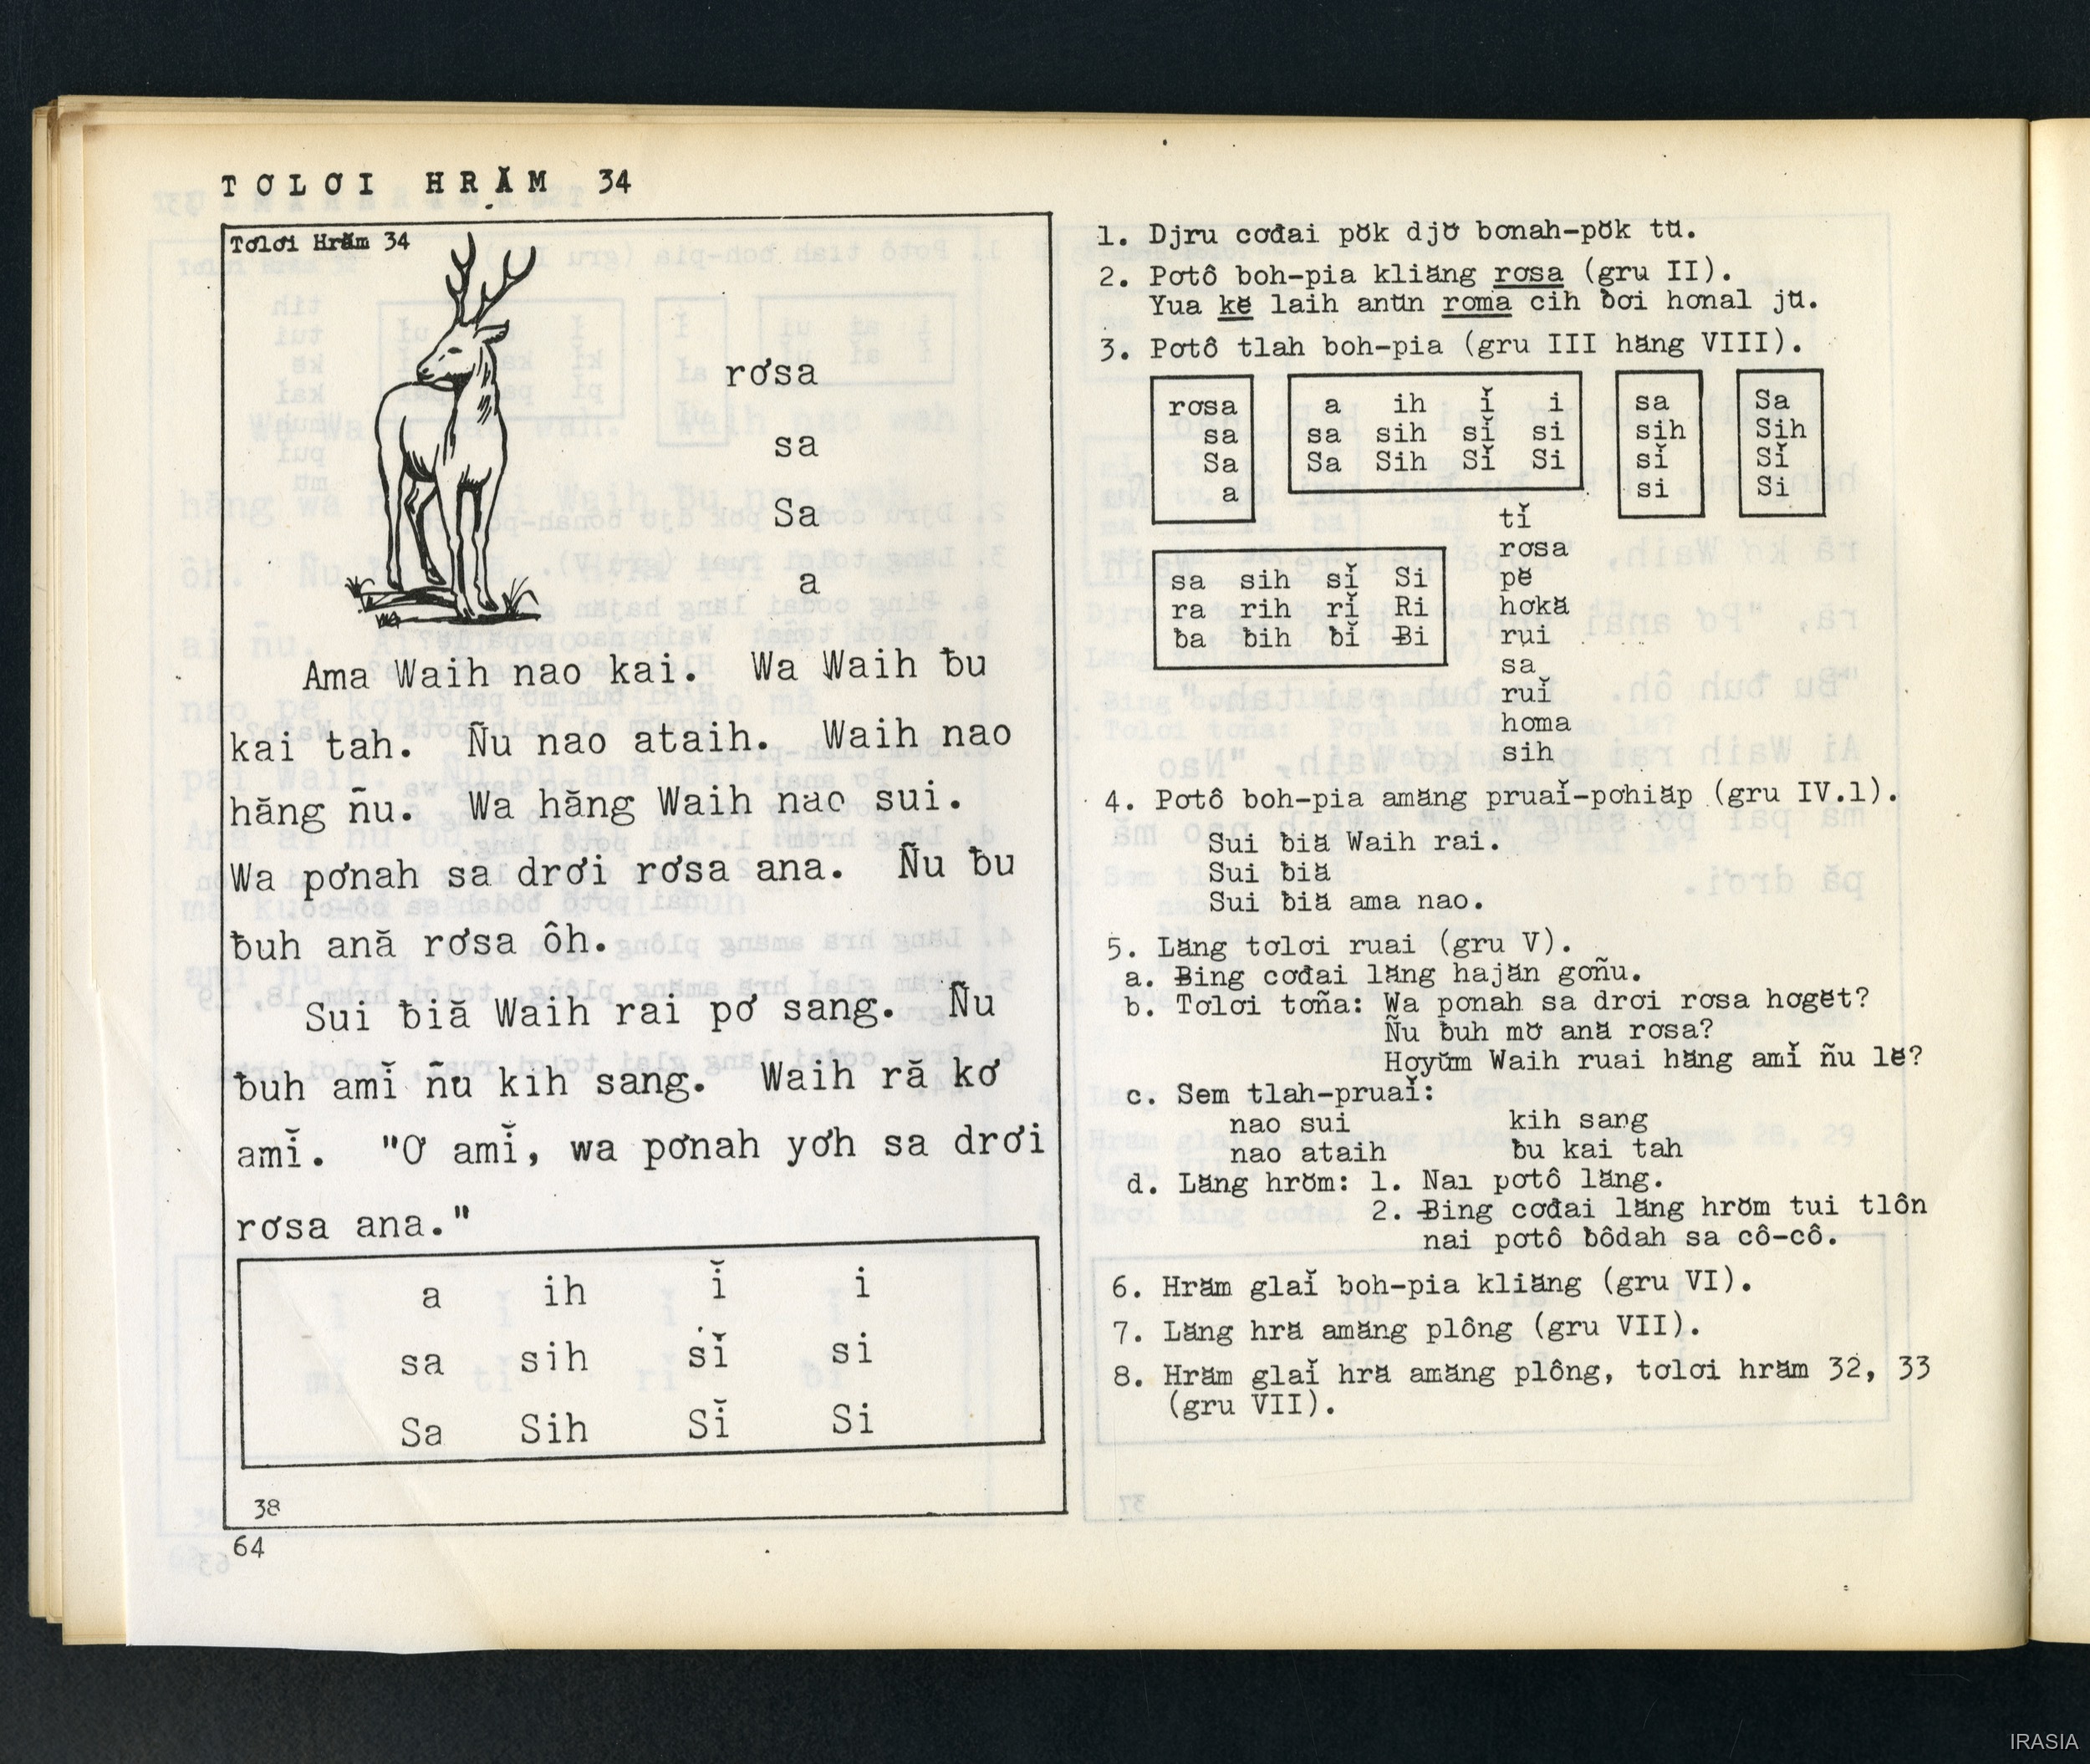 TƠLƠI HRĂM 34
Tơlơi Hrăm 34
rơsa
sa
Sa
a
Ama Waih nao kai. Wa Waih ƀu
kai tah. Ñu nao ataih. Waih nao
hăng ñu. Wa hăng Waih nao sui.
Wa pơnah sa drơi rơsa ana. Ñu ƀu
ƀuh ană rơsa ôh.
Sui ƀiă Waih rai pơ sang. Ñu
ƀuh amĭ ñu kih sang. Waih ră kơ
amĭ. "Ơ amĭ, wa pơnah yơh sa drơi
rơsa ana."
a ih ĭ i
sa sih sĭ si
Sa Sih Sĭ Si
38
64
1. Djru cơđai pŏk djơ̆ bơnah-pŏk tŭ.
2. Pơtô boh-pia kliăng rơsa (gru II).
Yua kĕ laih anŭn rơma cih ƀơi hơnal jŭ.
3. Pơtô tlah boh-pia (gru III hăng VIII).
rơsa
sa
Sa
a
a ih ĭ i
sa sih sĭ si
Sa Sih Sĭ Si
sa
sih
sĭ
si
Sa
Sih
Sĭ
Si
sa sih sĭ Si
ra rih rĭ Ri
ƀa ƀih ƀĭ Ƀi
tĭ
rơsa
pĕ
hơkă
rui
sa
ruĭ
hơma
sih
4. Pơtô boh-pia amăng pruaĭ-pơhiăp (gru IV.1).
Sui ƀiă Waih rai.
Sui ƀiă
Sui ƀiă ama nao.
5. Lăng tơlơi ruai (gru V).
a. Ƀing cơđai lăng hajăn gơñu.
b. Tơlơi tơña: Wa pơnah sa drơi rơsa hơgĕt?
Ñu ƀuh mơ̆ ană rơsa?
Hơyŭm Waih ruai hăng amĭ ñu lĕ?
c. Sem tlah-pruaĭ:
nao sui kih sang
nao ataih ƀu kai tah
d. Lăng hrŏm: 1. Nai pơtô lăng.
2. Ƀing cơđai lăng hrŏm tui tlôn
nai pơtô ƀôdah sa cô-cô.
6. Hrăm glaĭ boh-pia kliăng (gru VI).
7. Lăng hră amăng plông (gru VII).
8. Hrăm glaĭ hră amăng plông, tơlơi hrăm 32, 33
(gru VII).
IRASIA